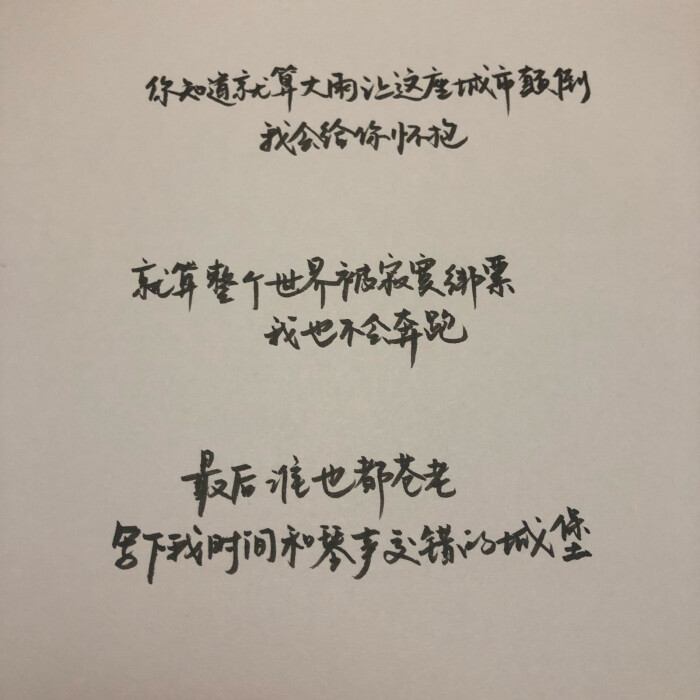 你知道就算大雨让这座城市颠倒
我会给你怀抱
就算整个世界被寂寞绑票
我也不会奔跑
最后谁也都苍老
写下我时间和琴声交错的城堡